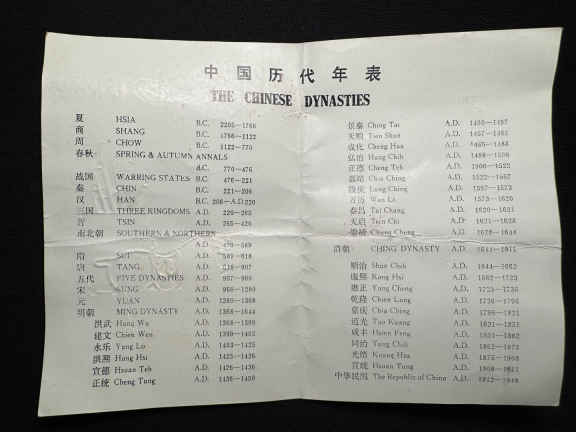 中国历代年表
THE CHINESE DYNASTIES
夏 HSIA B.C. 2205-1766
商 SHANG B.C. 1766-1122
周 CHOW B.C. 1122-770
春秋 SPRING & AUTUMN ANNALS
B.C. 770-476
战国 WARRING STATES B.C. 476-221
秦 CHIN B.C. 221-206
汉 HAN B.C. 206-A.D 220
三国 THREE KINGDOMS A.D. 220-265
晋 TSIN A.D. 265-420
南北朝 SOUTHERN & NORTHERN
A.D. 420-589
隋 SUI A.D. 589-618
唐 TANG A.D. 618-907
五代 FIVE DYNASTIES A.D. 907-960
宋 SUNG A.D. 960-1280
元 YUAN A.D. 1280-1368
明朝 MING DYNASTY A.D. 1368-1644
洪武 Hung Wu A.D. 1368-1398
建文 Chien Wen A.D. 1399-1402
永乐 Yung Lo A.D. 1403-1425
洪熙 Hung Hsi A.D. 1425-1426
宣德 Hsuan Teh A.D. 1426-1436
正统 Cheng Tung A.D. 1436-1450
景泰 Ching Tai A.D. 1450-1457
天顺 Tien Shun A.D. 1457-1465
成化 Cheng Hua A.D. 1465-1488
弘治 Hung Chih A.D. 1488-1506
正德 Cheng Teh A.D. 1506-1522
嘉靖 Chia Ching A.D. 1522-1567
隆庆 Lung Ching A.D. 1567-1573
万历 Wan Li A.D. 1573-1620
泰昌 Tai Chang A.D. 1620-1621
天启 Tien Chi A.D. 1621-1628
崇祯 Chung Cheng A.D. 1628-1644
清朝 CHING DYNASTY A.D. 1644-1911
顺治 Shun Chih A.D. 1644-1662
康熙 Kang Hsi A.D. 1662-1723
雍正 Yung Cheng A.D. 1723-1736
乾隆 Chien Lung A.D. 1736-1796
嘉庆 Chia Ching A.D. 1796-1821
道光 Tao Kuang A.D. 1821-1851
咸丰 Hsien Feng A.D. 1851-1862
同治 Tung Chih A.D. 1862-1875
光绪 Kuang Hsu A.D. 1875-1908
宣统 Hsuan Tung A.D. 1908-1911
中华民国 The Republic of China A.D. 1912-1949